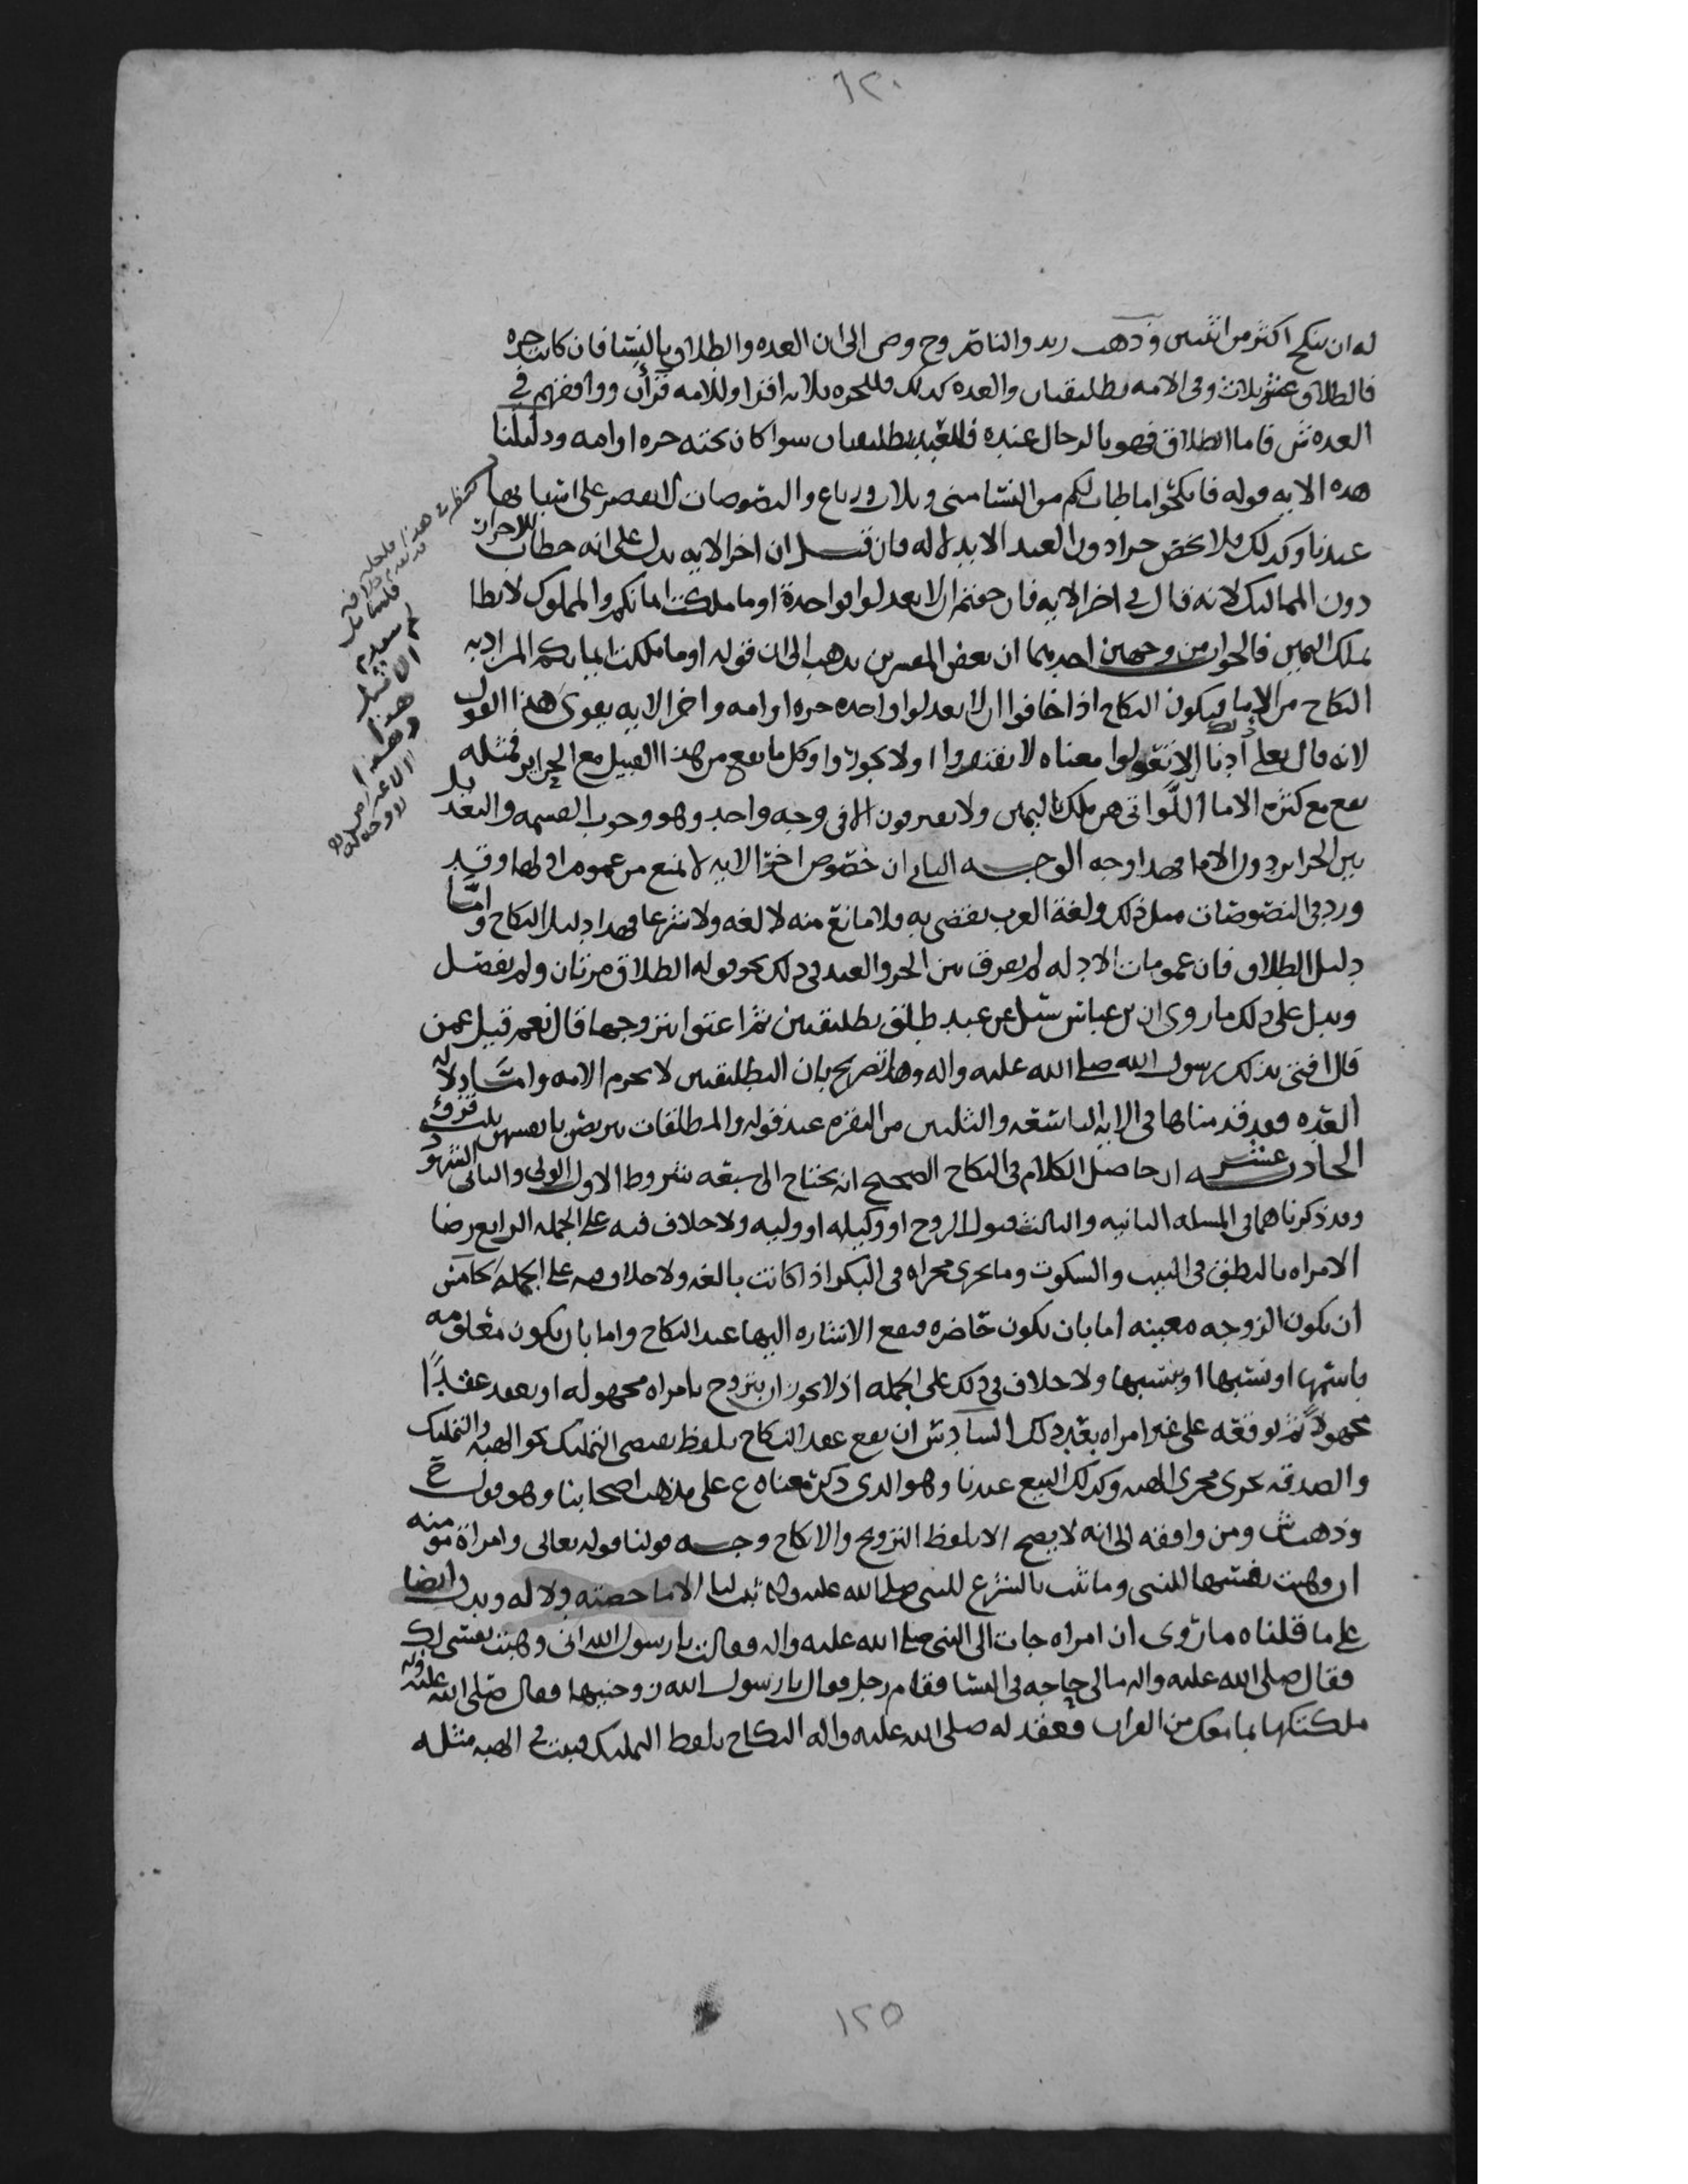 ١٢٠
له ان ينكح اكثر من اثنتين وذهب زيد والناصر وح وص الى ان العده والطلاق بالنسا فان كانت حره
فالطلاق عنده ثلاث وفي الامه تطليقتان والعده كذلك فللحره ثلاثه اقرا وللامه قرآن ووافقهم في
العده ش فاما الطلاق فهو بالرجال عنده فللعبد تطليقتان سوا كان تحته حره او امه ودليلنا
هذه الايه قوله فانكحوا ما طاب لكم من النسا مثنى وثلاث ورباع والنصوصات لا تقصر على اسبابها
عندنا وكذلك فلا يخص حرا دون العبد الا بدلاله فان قيل ان اخر الايه يدل على انه خطاب للاحرار
دون المماليك لانه قال في اخر الايه فان خفتم ان لا تعدلوا فواحدة او ما ملكت ايمانكم والمملوك لا يطا
بملك اليمين فالجواب من وجهين احدهما ان بعض المفسرين يذهب الى ان قوله او ما ملكت ايمانكم المراد به
النكاح من الاما فيكون النكاح اذا خافوا ان لا يعدلوا واحده حره او امه واخر الايه يقوي هذا القول
لانه قال تعلى ذلك أدنا الا تعولوا معناه لا تفتقروا او لا تجوروا وكل ما يقع من هذا القبيل مع الحراير فمثله
يقع مع كثره الاما اللواتي هن ملك اليمين ولا يفترقون الا في وجه واحد وهو وجوب القسمه والتعديل
بين الحراير دون الاما فهذا وجه الوجه الثاني ان خصوص اخر الايه لا يمنع من عموم اولها وقد
ورد في النصوصات مثل ذلك ولغة العرب تقضي به فلا مانع منه لا لغه ولا شرعا فهذا دليل النكاح واما
دليل الطلاق فان عمومات الادله لم تفرق بين الحر والعبد في ذلك نحو قوله الطلاق مرتان ولم يفصل
ويدل على ذلك ما روي ان بن عباس سئل عن عبد طلق تطليقتين ثم اعتقا ايتزوجها قال نعم قيل عمن
قال افتى بذلك رسول الله صلى الله عليه واله وهذا تصريح بان التطليقتين لا تحرم الامه واما دلاله
العده فقد قدمناها في الايه التاسعه والثلثين من البقره عند قوله والمطلقات يتربصن بانفسهن ثلثه قروء
الحادي عشره ان حاصل الكلام في النكاح الصحيح انه يحتاج الى سبعه شروط الاول الولي والثاني الشهود
وقد ذكرناهما في المسله الثانيه والثالث قبول الزوج او وكيله او وليه ولا خلاف فيه على الجمله الرابع رضا
الامراه بالنطق في الثيب والسكوت وما يجرى مجراه في البكر اذا كانت بالغه ولا خلاف فيه على الجمله الخامس
ان تكون الزوجه معينه اما بان تكون حاضره فتقع الاشاره اليها عند النكاح واما بان تكون معلومه
باسمها او نسبها ولا خلاف في ذلك على الجمله اذ لا يجوز ان يتزوج بامراه مجهوله او يعقد عقدًا
مجهولاً ثم يوقعه على غير امراه بعد ذلك السادس ان يقع عقد النكاح بلفظ يقتضى التمليك نحو الهبه والتمليك
والصدقه تجرى مجرى الهبه وكذلك البيع عندنا وهو الذي ذكر معناه ع على مذهب اصحابنا وهو قول ح
وذهب ش ومن وافقه الى انه لا يصح الا بلفظ التزويج والانكاح وجه قولنا قوله تعالى وامراة مومنه
ان وهبت نفسها للنبي وما ثبت بالشرع للنبي صلى الله عليه واله ثبت لنا الا ما خصته دلاله ويدل ايضا
على ما قلناه ما روي ان امراه جات الى النبي صلى الله عليه واله وقالت يا رسول الله اني وهبت نفسي لك
فقال صلى الله عليه واله مالي حاجه في النسا فقام رجل فقال يا رسول الله زوجنيها فقال صلى الله عليه واله
ملكتكها بما معك من القران فعقد له صلى الله عليه واله النكاح بلفظ التمليك فيثبت في الهبه مثله
١٢٥